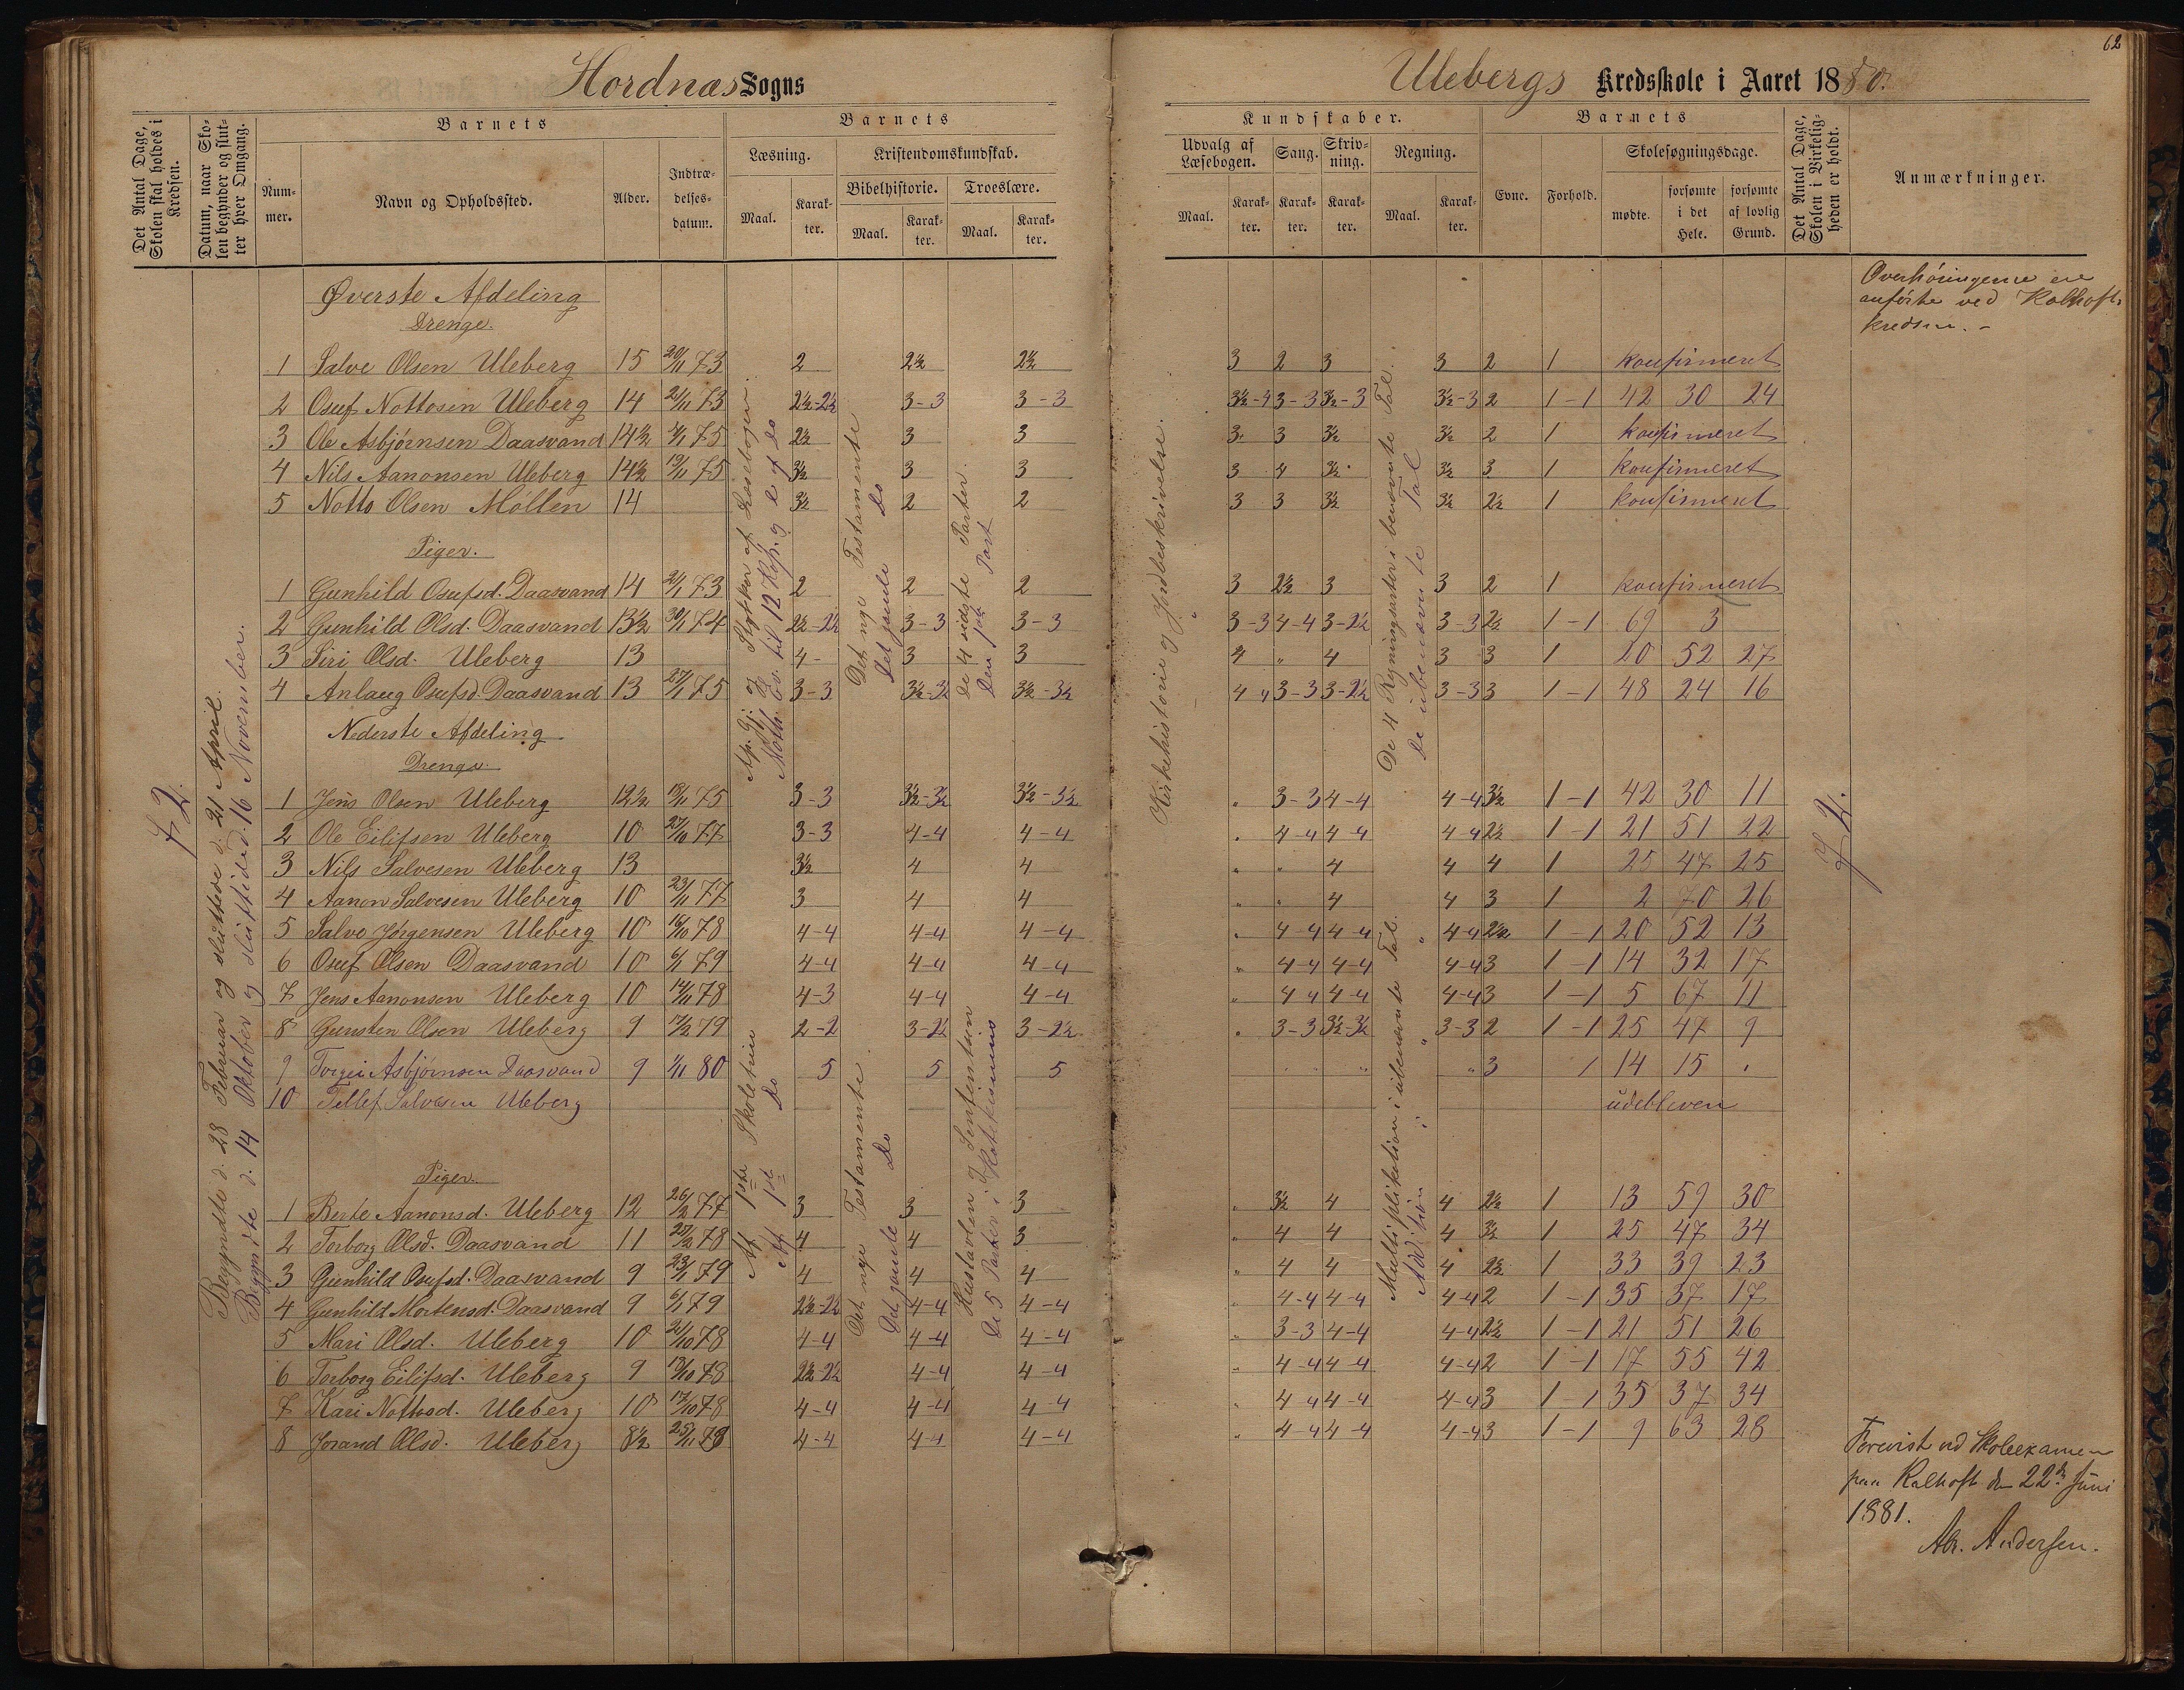 62
Hordnæs Sogns
Ulebergs Kredsskole i Aaret 1880.
Det Antal Dage, Skolen skal holdes i Kredsen.
Datum, naar Skolen begynder og slutter hver Omgang.
Barnets
Nummer.
Navn og Opholdssted.
Alder.
Indtrædelsesdatum.
Barnets
Læsning.
Maal.
Karakter.
Kristendomskundskab.
Bibelhistorie.
Maal.
Karakter.
Troeslære.
Maal.
Karakter.
Kundskaber.
Udvalg af Læsebogen.
Maal.
Karakter.
Sang.
Karakter.
Skrivning.
Karakter.
Regning.
Maal.
Karakter.
Barnets
Evne.
Forhold.
Skolesøgningsdage.
mødte.
forsømte i det Hele.
forsømte af lovlig Grund.
Det Antal Dage, Skolen i Virkeligheden er holdt.
Anmærkninger.
72.
Begyndte d. 28 Februar og sluttede d. 21 April.
Begyndte d. 14 Oktober og sluttede d. 16 November.
Øverste Afdeling
Drenge.
1 Salve Olsen Uleberg 15 20/11 73 2 2½ 2½ 3 2 3 3 2 1 konfirmeret
2 Osuf Nottosen Uleberg 14 21/11 73 2½-2½ 3-3 3-3 3½-4 3-3 3½-3 3½-3 2 1-1 42 30 24
3 Ole Asbjørnsen Daasvand 14½ 4/1 75 2½ 3 3 3 3 3½ 3½ 2 1 konfirmeret
4 Nils Aanonsen Uleberg 14½ 19/11 75 3½ 3 3 3 4 3½ 3½ 3 1 konfirmeret
5 Notto Olsen Möllen 14 3½ 2 2 3 3 3½ 3½ 2½ 1 konfirmeret
Piger.
1 Gunhild Osufsd. Daasvand 14 21/1 73 2 2 2 3 2½ 3 3 2 1 konfirmeret
2 Gunhild Olsd. Daasvand 13½ 30/1 74 2½-2½ 3-3 3-3 3-3 4-4 3-2½ 3-3 2½ 1-1 69 3
3 Siri Olsd. Uleberg 13 4- 3 3 4 " 4 3 3 1 20 52 27
4 Anlaug Osufsd. Daasvand 13 27/1 75 3-3 3½-3½ 3½-3½ 4 " 3-3 3-2½ 3-3 3 1-1 48 24 16
Nederste Afdeling
Drenge.
1 Jens Olsen Uleberg 12½ 18/11 75 3-3 3½-3½ 3½-3½ " 3-3 4-4 4-4 3½ 1-1 42 30 11
2 Ole Eilifsen Uleberg 10 27/10 77 3-3 4-4 4-4 " 4-4 4-4 4-4 2½ 1-1 21 51 22
3 Nils Salvesen Uleberg 13 3½ 4 4 " " 4 4 4 1 25 47 25
4 Aanon Salvesen Uleberg 10 23/11 77 3 4 4 " " 4 4 3 1 2 70 26
5 Salve Jörgensen Uleberg 10 16/10 78 4-4 4-4 4-4 " 4-4 4-4 4-4 2½ 1-1 20 52 13
6 Osuf Olsen Daasvand 10 6/1 79 4-4 4-4 4-4 " 4-4 4-4 4-4 3 1-1 14 32 17
7 Jens Aanonsen Uleberg 10 14/11 78 4-3 4-4 4-4 " 4-4 4-4 4-4 3 1-1 5 67 11
8 Gunsten Olsen Uleberg 9 17/2 79 2-2 3-2½ 3-2½ " 3-3 3½-3½ 3-3 2 1-1 25 47 9
9 Torgei Asbjørnsen Daasvand 9 1/11 80 5 5 5 " " " " 3 1 14 15 "
10 Tellef Salvesen Uleberg udebleven
Piger.
1 Berte Aanonsd. Uleberg 12 26/2 77 3 3 3 " 3½ 4 4 2½ 1 13 59 30
2 Torborg Olsd. Daasvand 11 25/2 78 4 4 3 " 4 4 4 3½ 1 25 47 34
3 Gunhild Osufsd. Daasvand 9 23/1 79 4 4 4 " 4 4 4 2½ 1 33 39 23
4 Gunhild Mortensd. Daasvand 9 6/1 79 2½-2½ 4-4 4-4 " 4-4 4-4 4-4 2 1-1 35 37 17
5 Mari Olsd. Uleberg 10 21/10 78 4-4 4-4 4-4 " 3-3 4-4 4-4 2½ 1-1 21 51 26
6 Torborg Eilifsd. Uleberg 9 18/10 78 2½-2½ 4-4 4-4 " 4-4 4-4 4-4 2 1-1 17 55 42
7 Kari Nottosd. Uleberg 10 17/10 78 4-4 4-4 4-4 " 4-4 4-4 4-4 3 1-1 35 37 34
8 Jorand Olsd. Uleberg 8½ 25/11 78 4-4 4-4 4-4 " 4-4 4-4 4-4 3 1-1 9 63 28
Stykker af Læsebogen.
Math. Ev. til 12 Kap. og af do
Det nye Testamente
Det gamle do
De 4 sidste Parter.
Den 1ste Part
Kirkehistorie og Jordbeskrivelse.
De 4 Regningsarter i benævnte Tal.
De ubenævnte Tal
Af 1ste Skoletrin
Af 1ste do
Det nye Testamente.
Det gamle do
Hustavlen
De 5 Parter i Katekismus
Multiplikation i ubenævnte Tal.
Addition i " "
72.
Overhöringerne ere
anförte ved Kalhoft-
kredsen. -
Forevist ved Skoleexamen
paa Kalhoft den 22de Juni
1881.
Ab. Andersen.